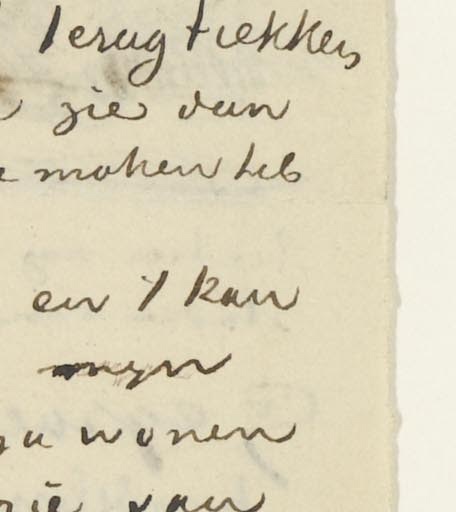 terugtrekken
zie van
maken heb
en 't kan
mijn
wonen
van